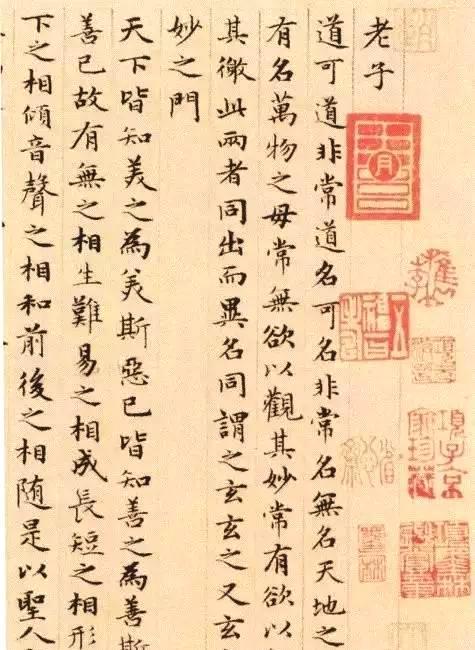 老子
道可道非常道名可名非常名無名天地之
有名萬物之母常無欲以觀其妙常有欲以
其徼此兩者同出而異名同謂之玄玄之又玄
妙之門
天下皆知美之為美斯惡已皆知善之為善斯
善已故有無之相生難易之相成長短之相形
下之相傾音聲之相和前後之相随是以聖人
項子京家珍藏